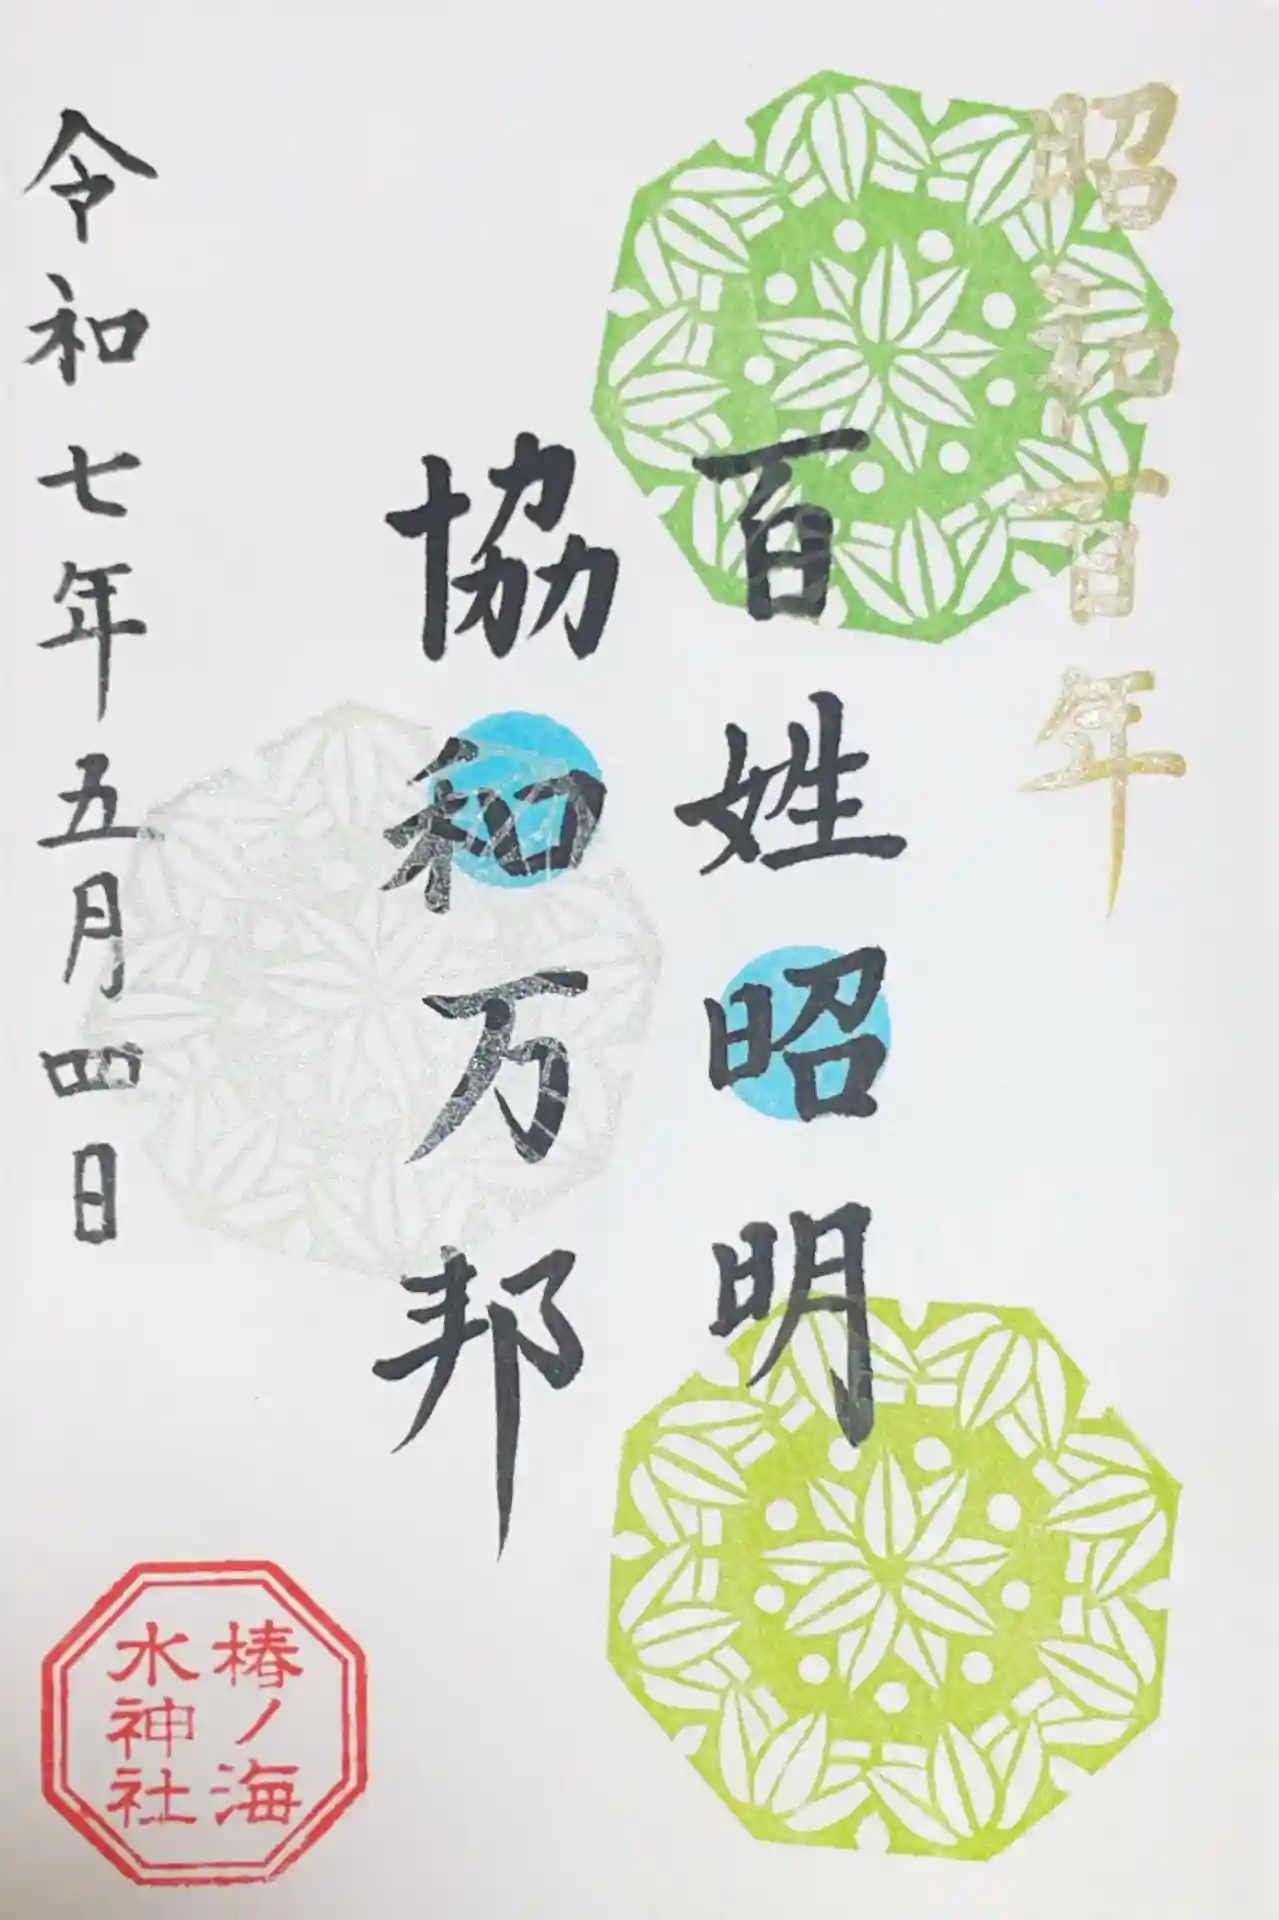 昭和百年
百姓昭明
協和万邦
令和七年五月四日
椿ノ海
水神社